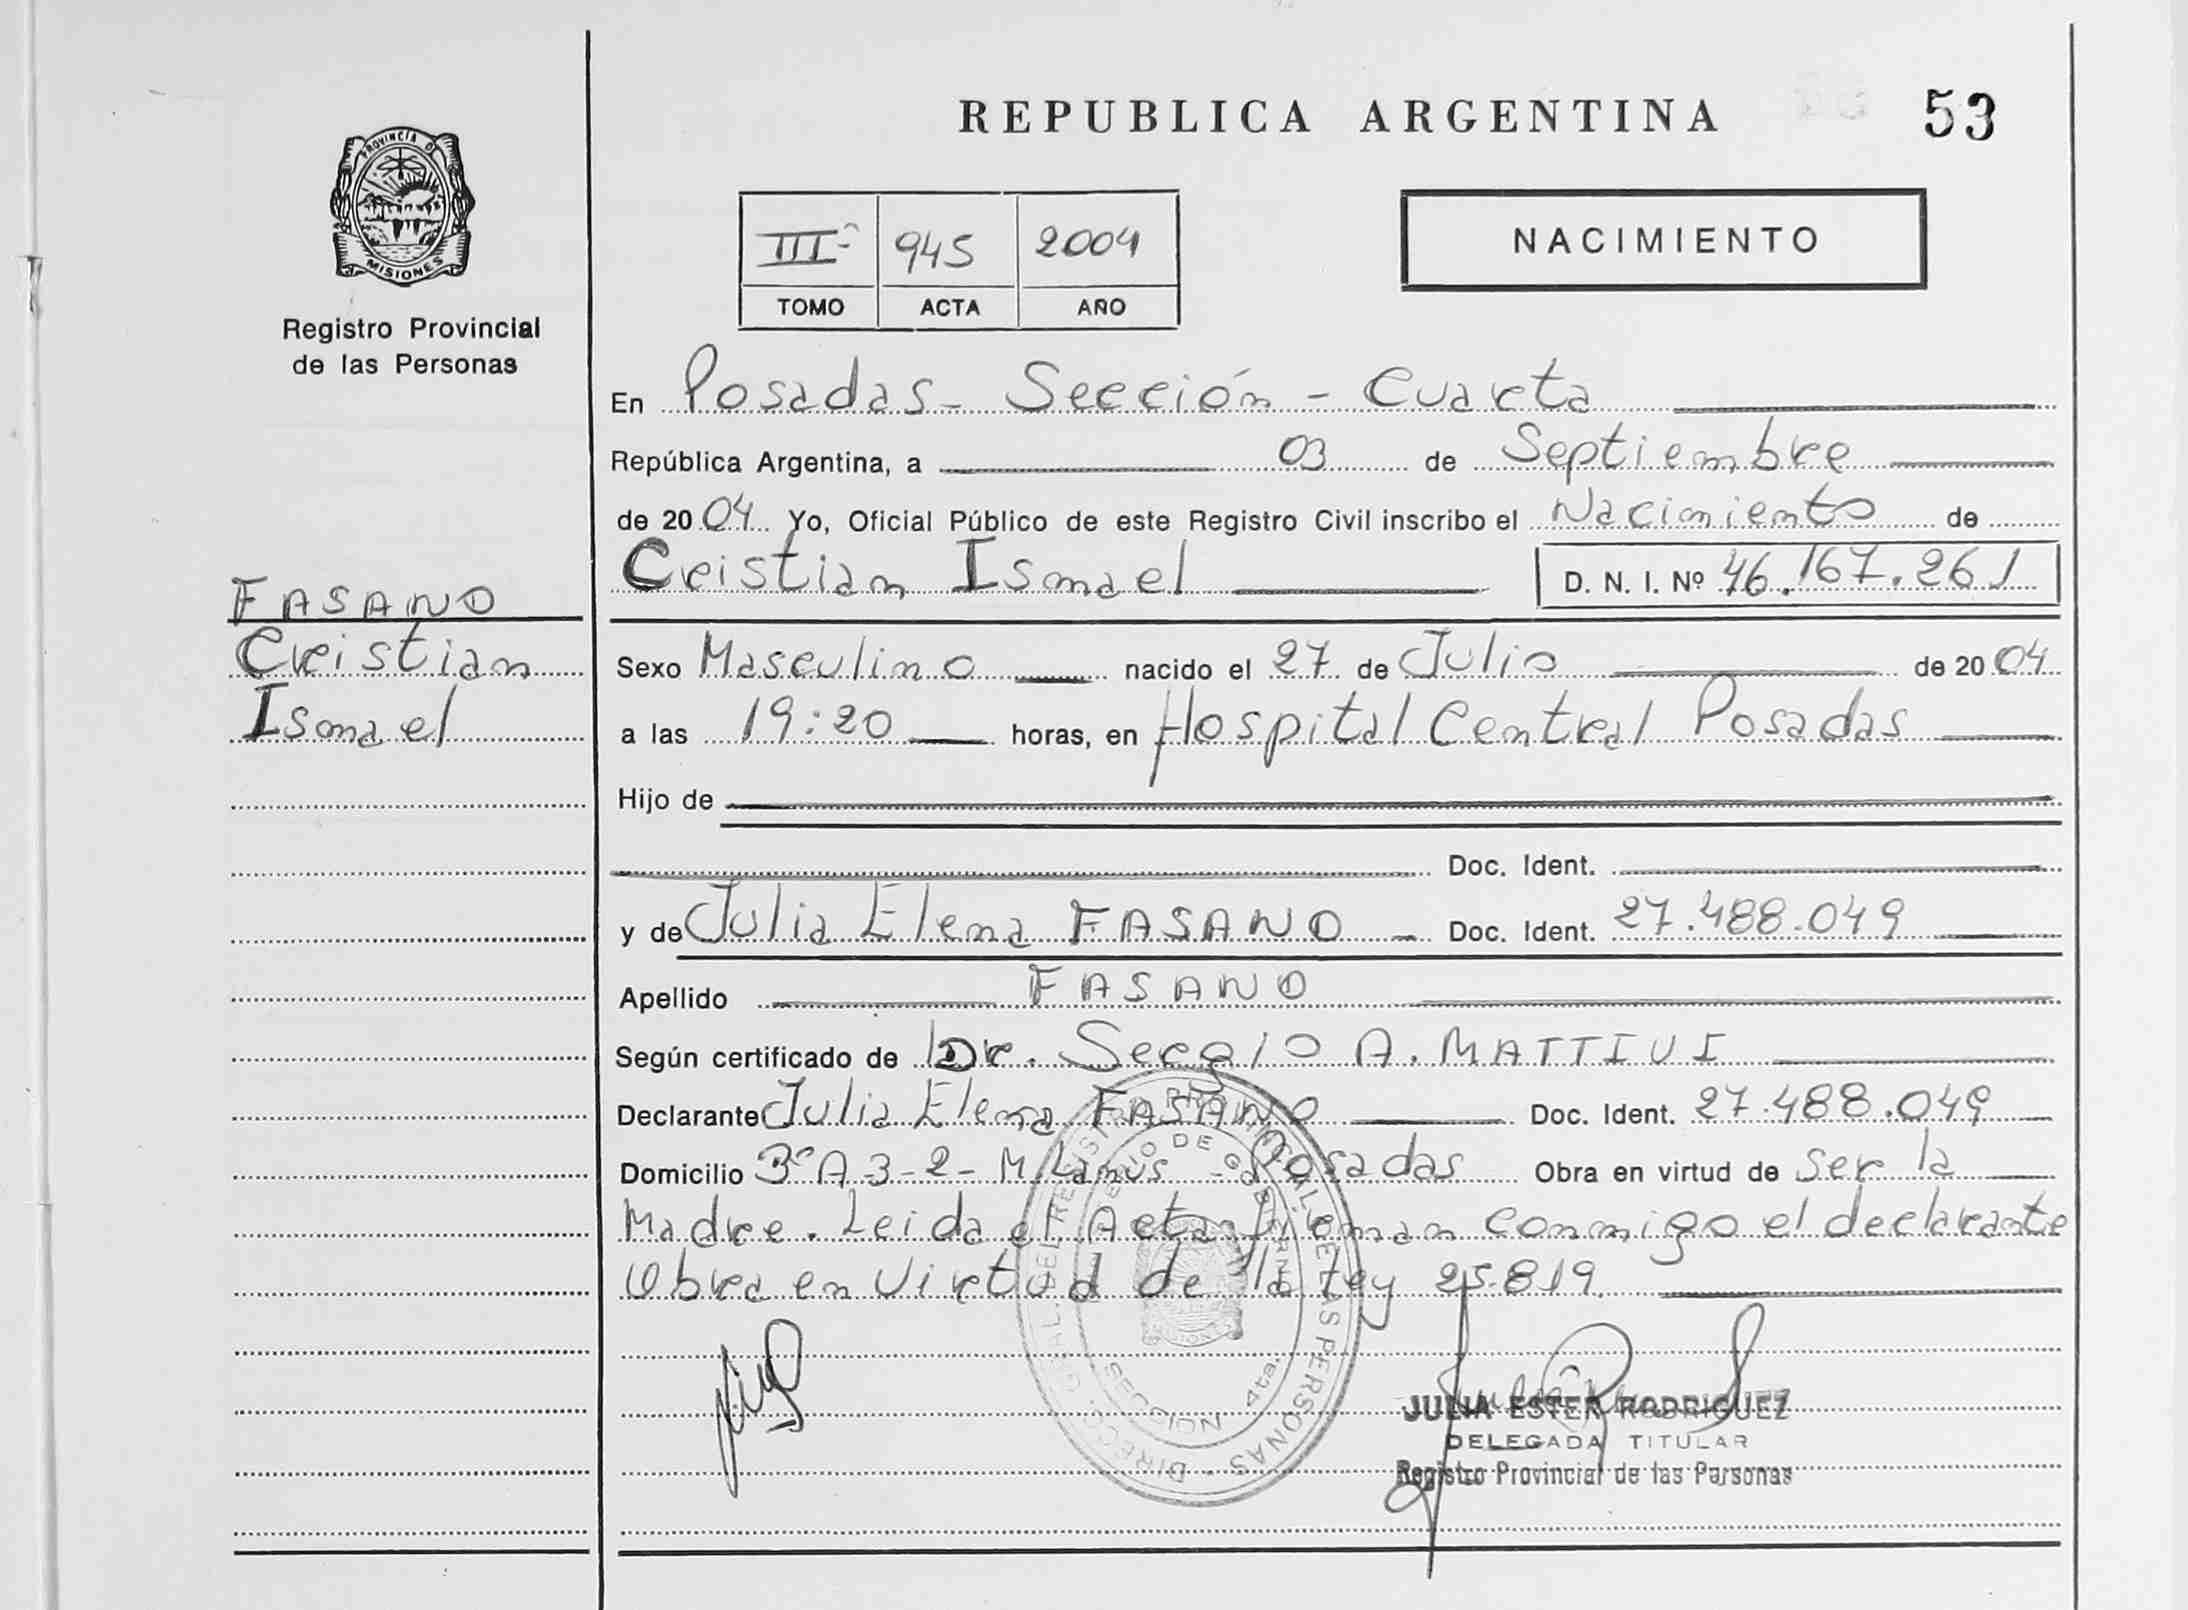 REPUBLICA ARGENTINA 53
PROVINCIA D
MISIONES
Registro Provincial
de las Personas
III° 945 2004
TOMO ACTA AÑO
NACIMIENTO
En Posadas - Sección - Cuarta
República Argentina, a 03 de Septiembre
de 2004 Yo, Oficial Público de este Registro Civil inscribo el Nacimiento de
Cristian Ismael D. N. I. Nº 46.167.261
FASANO
Cristian
Ismael
Sexo Masculino nacido el 27 de Julio de 2004
a las 19:20 horas, en Hospital Central Posadas
Hijo de
Doc. Ident.
y de Julia Elena FASANO - Doc. Ident. 27.488.049
Apellido FASANO
Según certificado de Dr. Sergio A. MATTIVI
Declarante Julia Elena FASANO Doc. Ident. 27.488.049
Domicilio 3° A 3-2- M. Lanus - Posadas Obra en virtud de Ser la
Madre. Leida el Acta firman conmigo el declarante
Obra en Virtud de la Ley 25.819.
JULIA ESTER RODRIGUEZ
DELEGADA TITULAR
Registro Provincial de las Personas
SECCION 4ta.